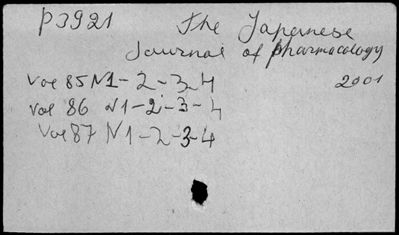 P3921 The Japanese
Journal of pharmacology
Vol 85 N1-2-3-4 2001
Vol 86 N1-2-3-4
Vol 87 N1-2-3-4